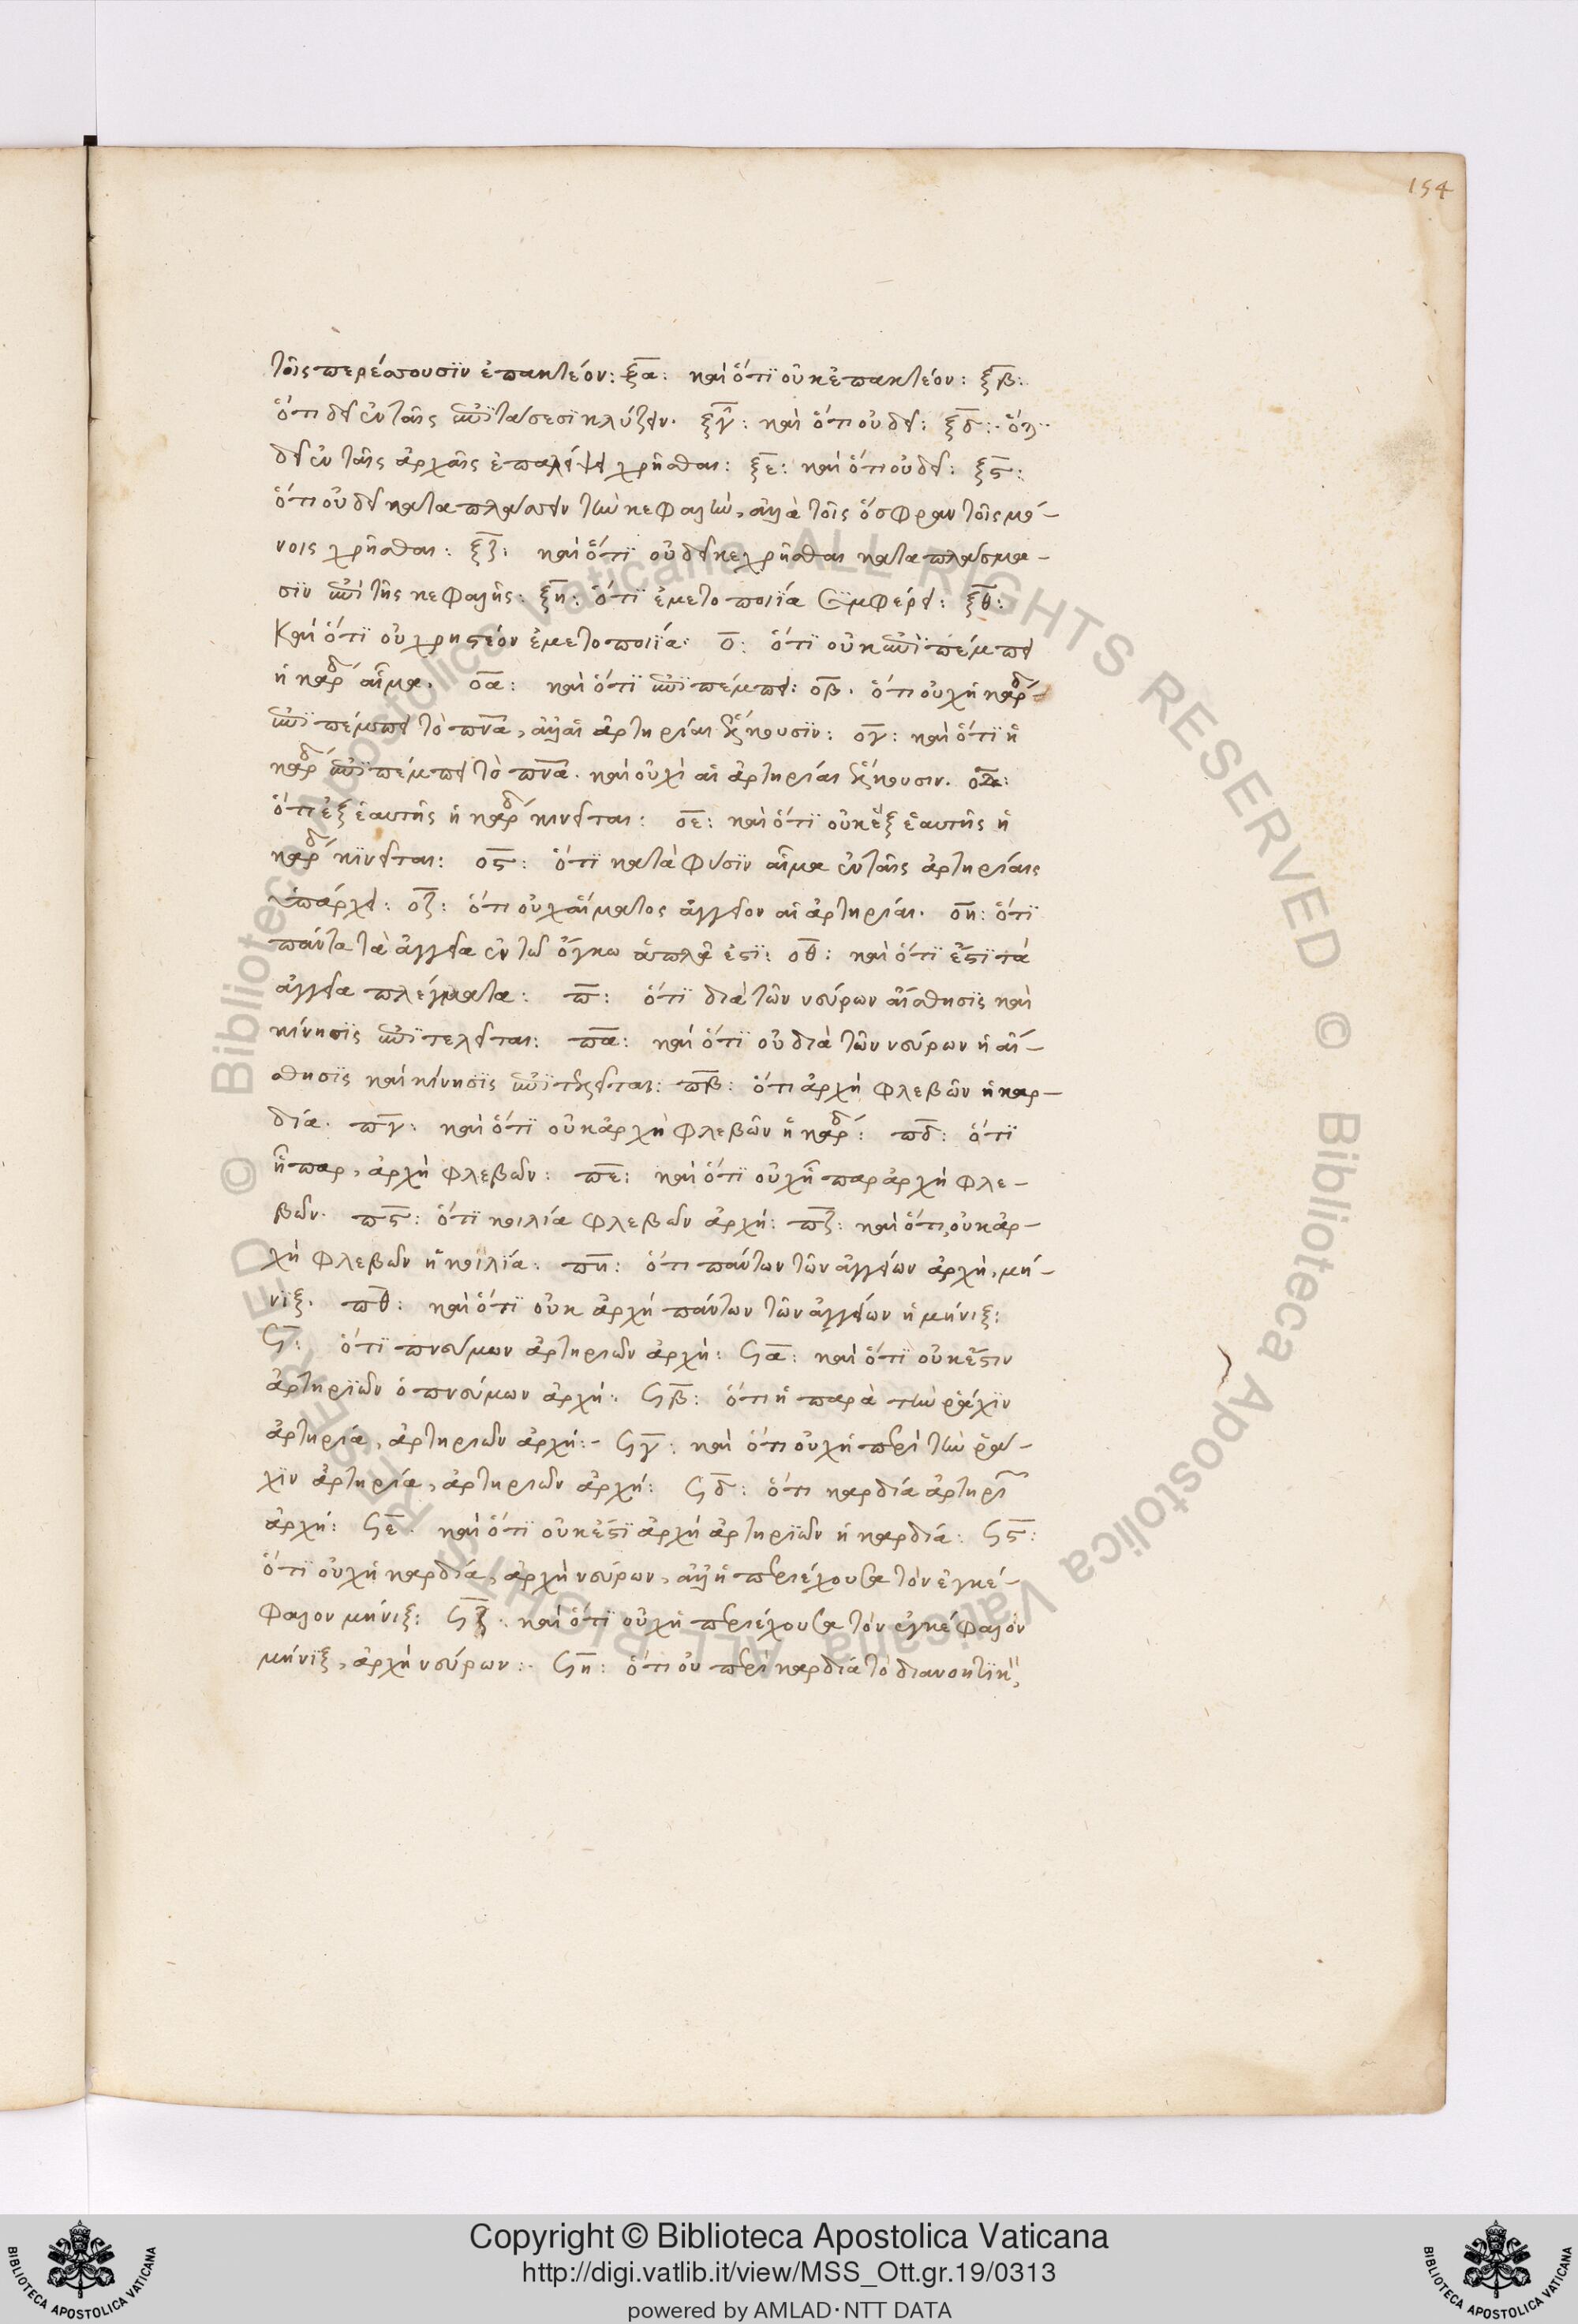 154
τοῖς περέασουσϊν ἐπακτέον: ξα: καὶ ὅτϊ οὐκ ἐπακτέον: ξβ:
ὅτι δεῖ ἐν ταῖς ἐπϊτάσεσϊ κλύζειν. ξγ: καὶ ὅτι οὐ δεῖ: ξδ: ὅτι
δεῖ ἐν ταῖς ἀρχαῖς χρῆσθαι: ξε: καὶ ὅτι οὐ δεῖ: ξς:
ὅτι οὐ δεῖ καταπλάσσειν τὴν κεφαλὴν, ἀλλὰ τοῖς ὀσφραντοῖς μό-
νοις χρῆσθαι: ξζ: καὶ ὅτϊ οὐ δεῖ κεχρῆσθαι καταπλάσμα-
σϊν ἐπὶ τῆς κεφαλῆς: ξη: ὅτϊ ἐμετοποιία συμφέρει: ξθ:
Καὶ ὅτϊ οὐ χρηστέον ἐμετοποιΐα: ο: ὅτϊ οὐκ ἐπϊπέμπει
ἡ καρδ αἷμα. οα: καὶ ὅτϊ ἐπϊπέμπει: οβ. ὅτι οὐχ ἡ καρδ
ἐπϊπέμπει τὸ πνα, ἀλλ' αἱ ἀρτηρίαι ἕλκουσϊν: ογ: καὶ ὅτϊ ἡ
καρδ ἐπϊπέμπει τὸ πνα. καὶ οὐχὶ αἱ ἀρτηρίαι ἕλκουσιν. οδ:
ὅτι ἐξ ἑαυτῆς ἡ καρδ κινεῖται: οε: καὶ ὅτϊ οὐκ ἐξ ἑαυτῆς ἡ
καρδ κϊνεῖται: ος: ὅτϊ κατὰ φύσϊν αἷμα ἐν ταῖς ἀρτηρίαις
ὑπάρχει: οζ: ὅτι οὐχ αἵματος ἀγγεῖον αἱ ἀρτηρίαι. οη: ὅτϊ
πάντα τὰ ἀγγεῖα ἐν τῶ ὄγκω ἁπλᾶ ἐστϊ: οθ: καὶ ὅτϊ ἐστϊ τὰ
ἀγγεῖα πλέγματα: π: ὅτϊ διὰ τῶν νεύρων αἴσθησϊς καὶ
κίνησϊς ἐπϊτελεῖται: πα: καὶ ὅτι οὐ διὰ τῶν νεύρων ἡ αἴ-
σθησϊς καὶ κίνησϊς ἐπϊτελεῖται: πβ: ὅτι ἀρχὴ φλεβῶν ἡ καρ-
δία. πγ: καὶ ὅτϊ οὐκ ἀρχὴ φλεβῶν ἡ καρδ: πδ: ὅτϊ
ἧπαρ, ἀρχὴ φλεβῶν: πε: καὶ ὅτϊ οὐχ ἧπαρ ἀρχὴ φλε-
βῶν. πς: ὅτϊ κοιλία φλεβῶν ἀρχή: πζ: καὶ ὅτι οὐκ ἀρ-
χὴ φλεβῶν ἡ κοιλία: πη: ὅτι πάντων τῶν ἀγγείων ἀρχὴ, μή-
νϊξ. πθ: καὶ ὅτϊ οὐκ ἀρχὴ πάντων τῶν ἀγγείων ἡ μήνιξ:
ϛ: ὅτϊ πνεύμων ἀρτηριῶν ἀρχή: ϛα: καὶ ὅτϊ οὐκ ἔστιν
ἀρτηρϊῶν ὁ πνεύμων ἀρχή: ϛβ: ὅτι ἡ παρὰ τὴν ῥάχϊν
ἀρτηρία, ἀρτηριῶν ἀρχή:- ϛγ: καὶ ὅτι οὐχ ἡ περὶ τὴν ῥά-
χϊν ἀρτηρία, ἀρτηριῶν ἀρχή: ϛδ: ὅτι καρδία ἀρτηρι
ἀρχή: ϛε. καὶ ὅτϊ οὐκ ἐστϊ ἀρχὴ ἀρτηρϊῶν ἡ καρδία: ϛς:
ὅτϊ οὐχ ἡ καρδία, ἀρχὴ νεύρων, ἀλλ' ἡ περιέχουσα τὸν ἐγκέ-
φαλον μήνιξ: ϛζ. καὶ ὅτϊ οὐχ ἡ περιέχουσα τὸν ἐγκέφαλον
μήνϊξ, ἀρχὴ νεύρων:- ϛη: ὅτι οὐ περὶ καρδία τὸ διανοητϊκ
Copyright © Biblioteca Apostolica Vaticana
http://digi.vatlib.it/view/MSS_Ott.gr.19/0313
powered by AMLAD·NTT DATA
BIBLIOTECA APOSTOLICA VATICANA
BIBLIOTECA APOSTOLICA VATICANA
© Biblioteca Apostolica Vaticana ALL RIGHTS RESERVED © Biblioteca Apostolica Vaticana ALL RIGHTS RESERVED